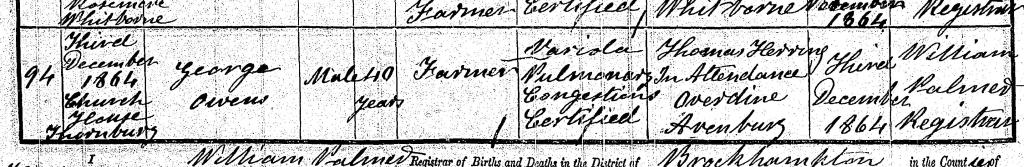 Rosemore Farmer Certified Whitborne December Registrar
Whitborne 1864
94 Third December 1864 Church House Thornbury George Owens Male 40 years Farmer Variola Pulmonary Congestions Certified Thomas Herring In Attendance Overdine Avenbury Third December 1864 William Palmer Registrar
I William Palmer Registrar of Births and Deaths in the District of Brockhampton in the Counties of